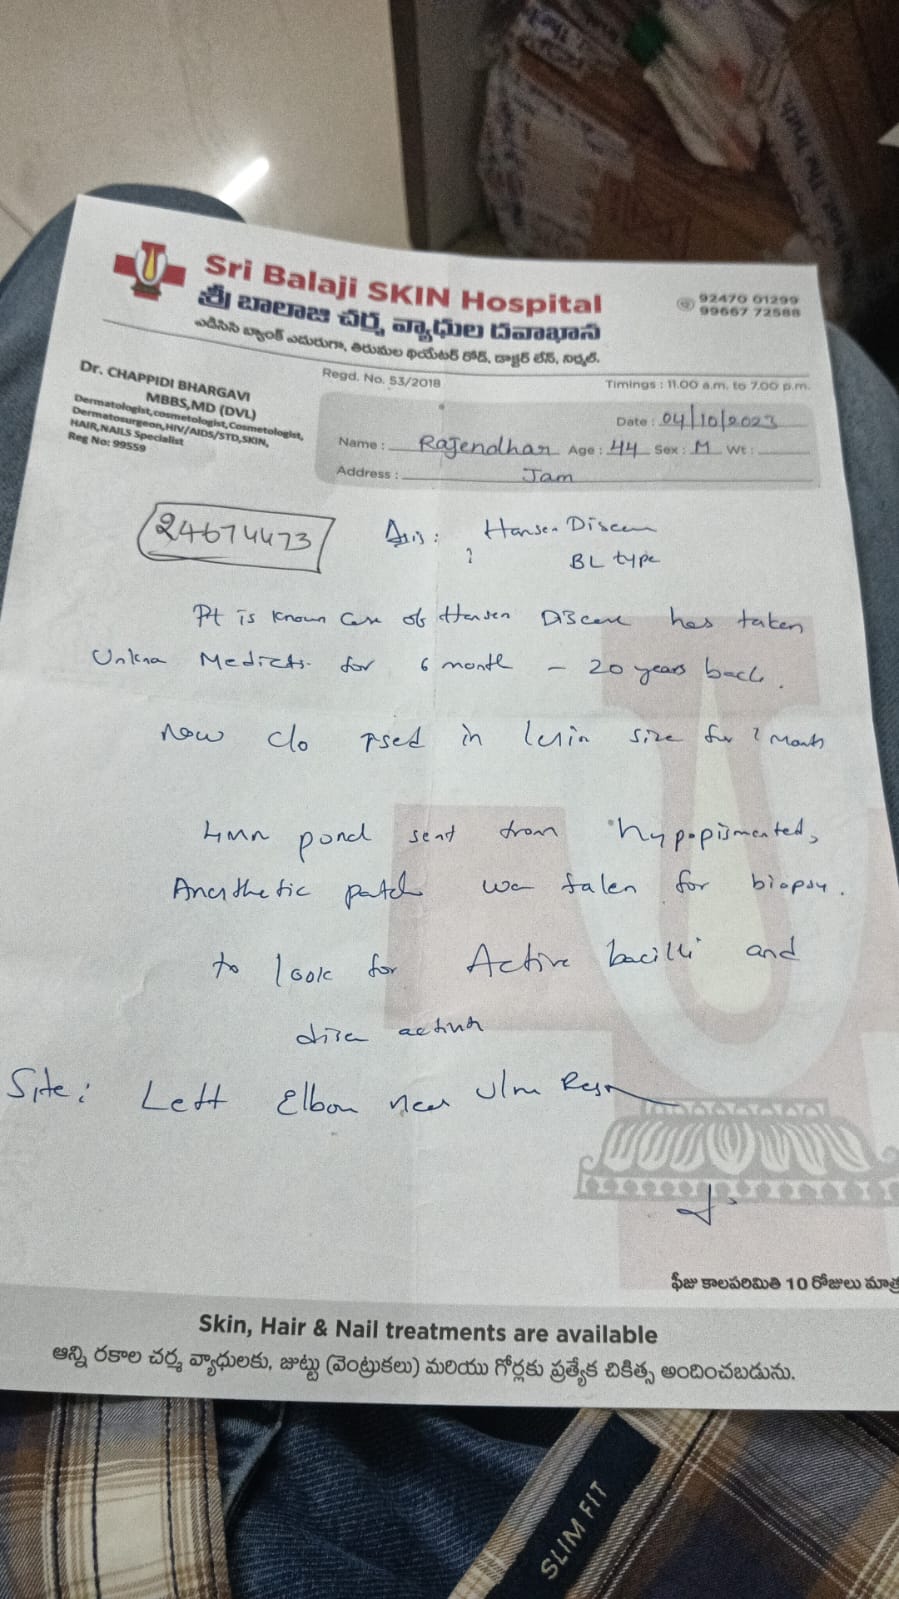 Sri Balaji SKIN Hospital
శ్రీ బాలాజి చర్మ వ్యాధుల దవాఖాన
ఎదురుగా, తిరుమల థియేటర్ రోడ్, డాక్టర్ లేన్, నిర్మల్.
92470 01299
99667 72588
Dr. CHAPPIDI BHARGAVI
MBBS,MD (DVL)
Dermatologist,cosmetologist,Cosmetologist,
Dermatosurgeon,HIV/AIDS/STD,SKIN,
HAIR,NAILS Specialist
Reg No: 99559
Regd. No. 53/2018
Timings : 11.00 a.m. to 7.00 p.m.
Date : 04/10/2023
Name : Rajendhar Age : 44 Sex : M Wt :
Address : Jam
24674473
Hansen Disease
BL type
Pt is known case of Hansen Disease has taken
Medicats for 6 month - 20 years back.
Now c/o in size for month
4mm sent from hypopigmented,
Anesthetic patch taken for biopsy.
to look for Active bacilli and
Site: Left Elbow near
ఫీజు కాలపరిమితి 10 రోజులు మాత్ర
Skin, Hair & Nail treatments are available
అన్ని రకాల చర్మ వ్యాధులకు, జుట్టు (వెంట్రుకలు) మరియు గోర్లకు ప్రత్యేక చికిత్స అందించబడును.
SLIM FIT